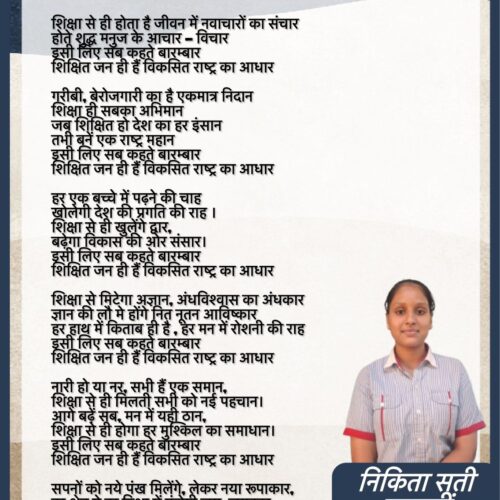 शिक्षा से ही होता है जीवन में नवाचारों का संचार
होते शुद्ध मनुज के आचार – विचार
इसी लिए सब कहते बारम्बार
शिक्षित जन ही हैं विकसित राष्ट्र का आधार
गरीबी, बेरोजगारी का है एकमात्र निदान
शिक्षा ही सबका अभिमान
जब शिक्षित हो देश का हर इंसान
तभी बनें एक राष्ट्र महान
इसी लिए सब कहते बारम्बार
शिक्षित जन ही हैं विकसित राष्ट्र का आधार
हर एक बच्चे में पढ़ने की चाह
खोलेगी देश की प्रगति की राह ।
शिक्षा से ही खुलेंगे द्वार,
बढ़ेगा विकास की ओर संसार।
इसी लिए सब कहते बारम्बार
शिक्षित जन ही हैं विकसित राष्ट्र का आधार
शिक्षा से मिटेगा अज्ञान, अंधविश्वास का अंधकार
ज्ञान की लौ मे होंगे नित नूतन आविष्कार
हर हाथ में किताब ही है , हर मन में रोशनी की राह
इसी लिए सब कहते बारम्बार
शिक्षित जन ही हैं विकसित राष्ट्र का आधार
नारी हो या नर, सभी हैं एक समान,
शिक्षा से ही मिलती सभी को नई पहचान।
आगे बढ़ें सब, मन में यही ठान,
शिक्षा से ही होगा हर मुश्किल का समाधान।
इसी लिए सब कहते बारम्बार
शिक्षित जन ही हैं विकसित राष्ट्र का आधार
सपनों को नये पंख मिलेंगे, लेकर नया रूपाकार,
निकिता सूती